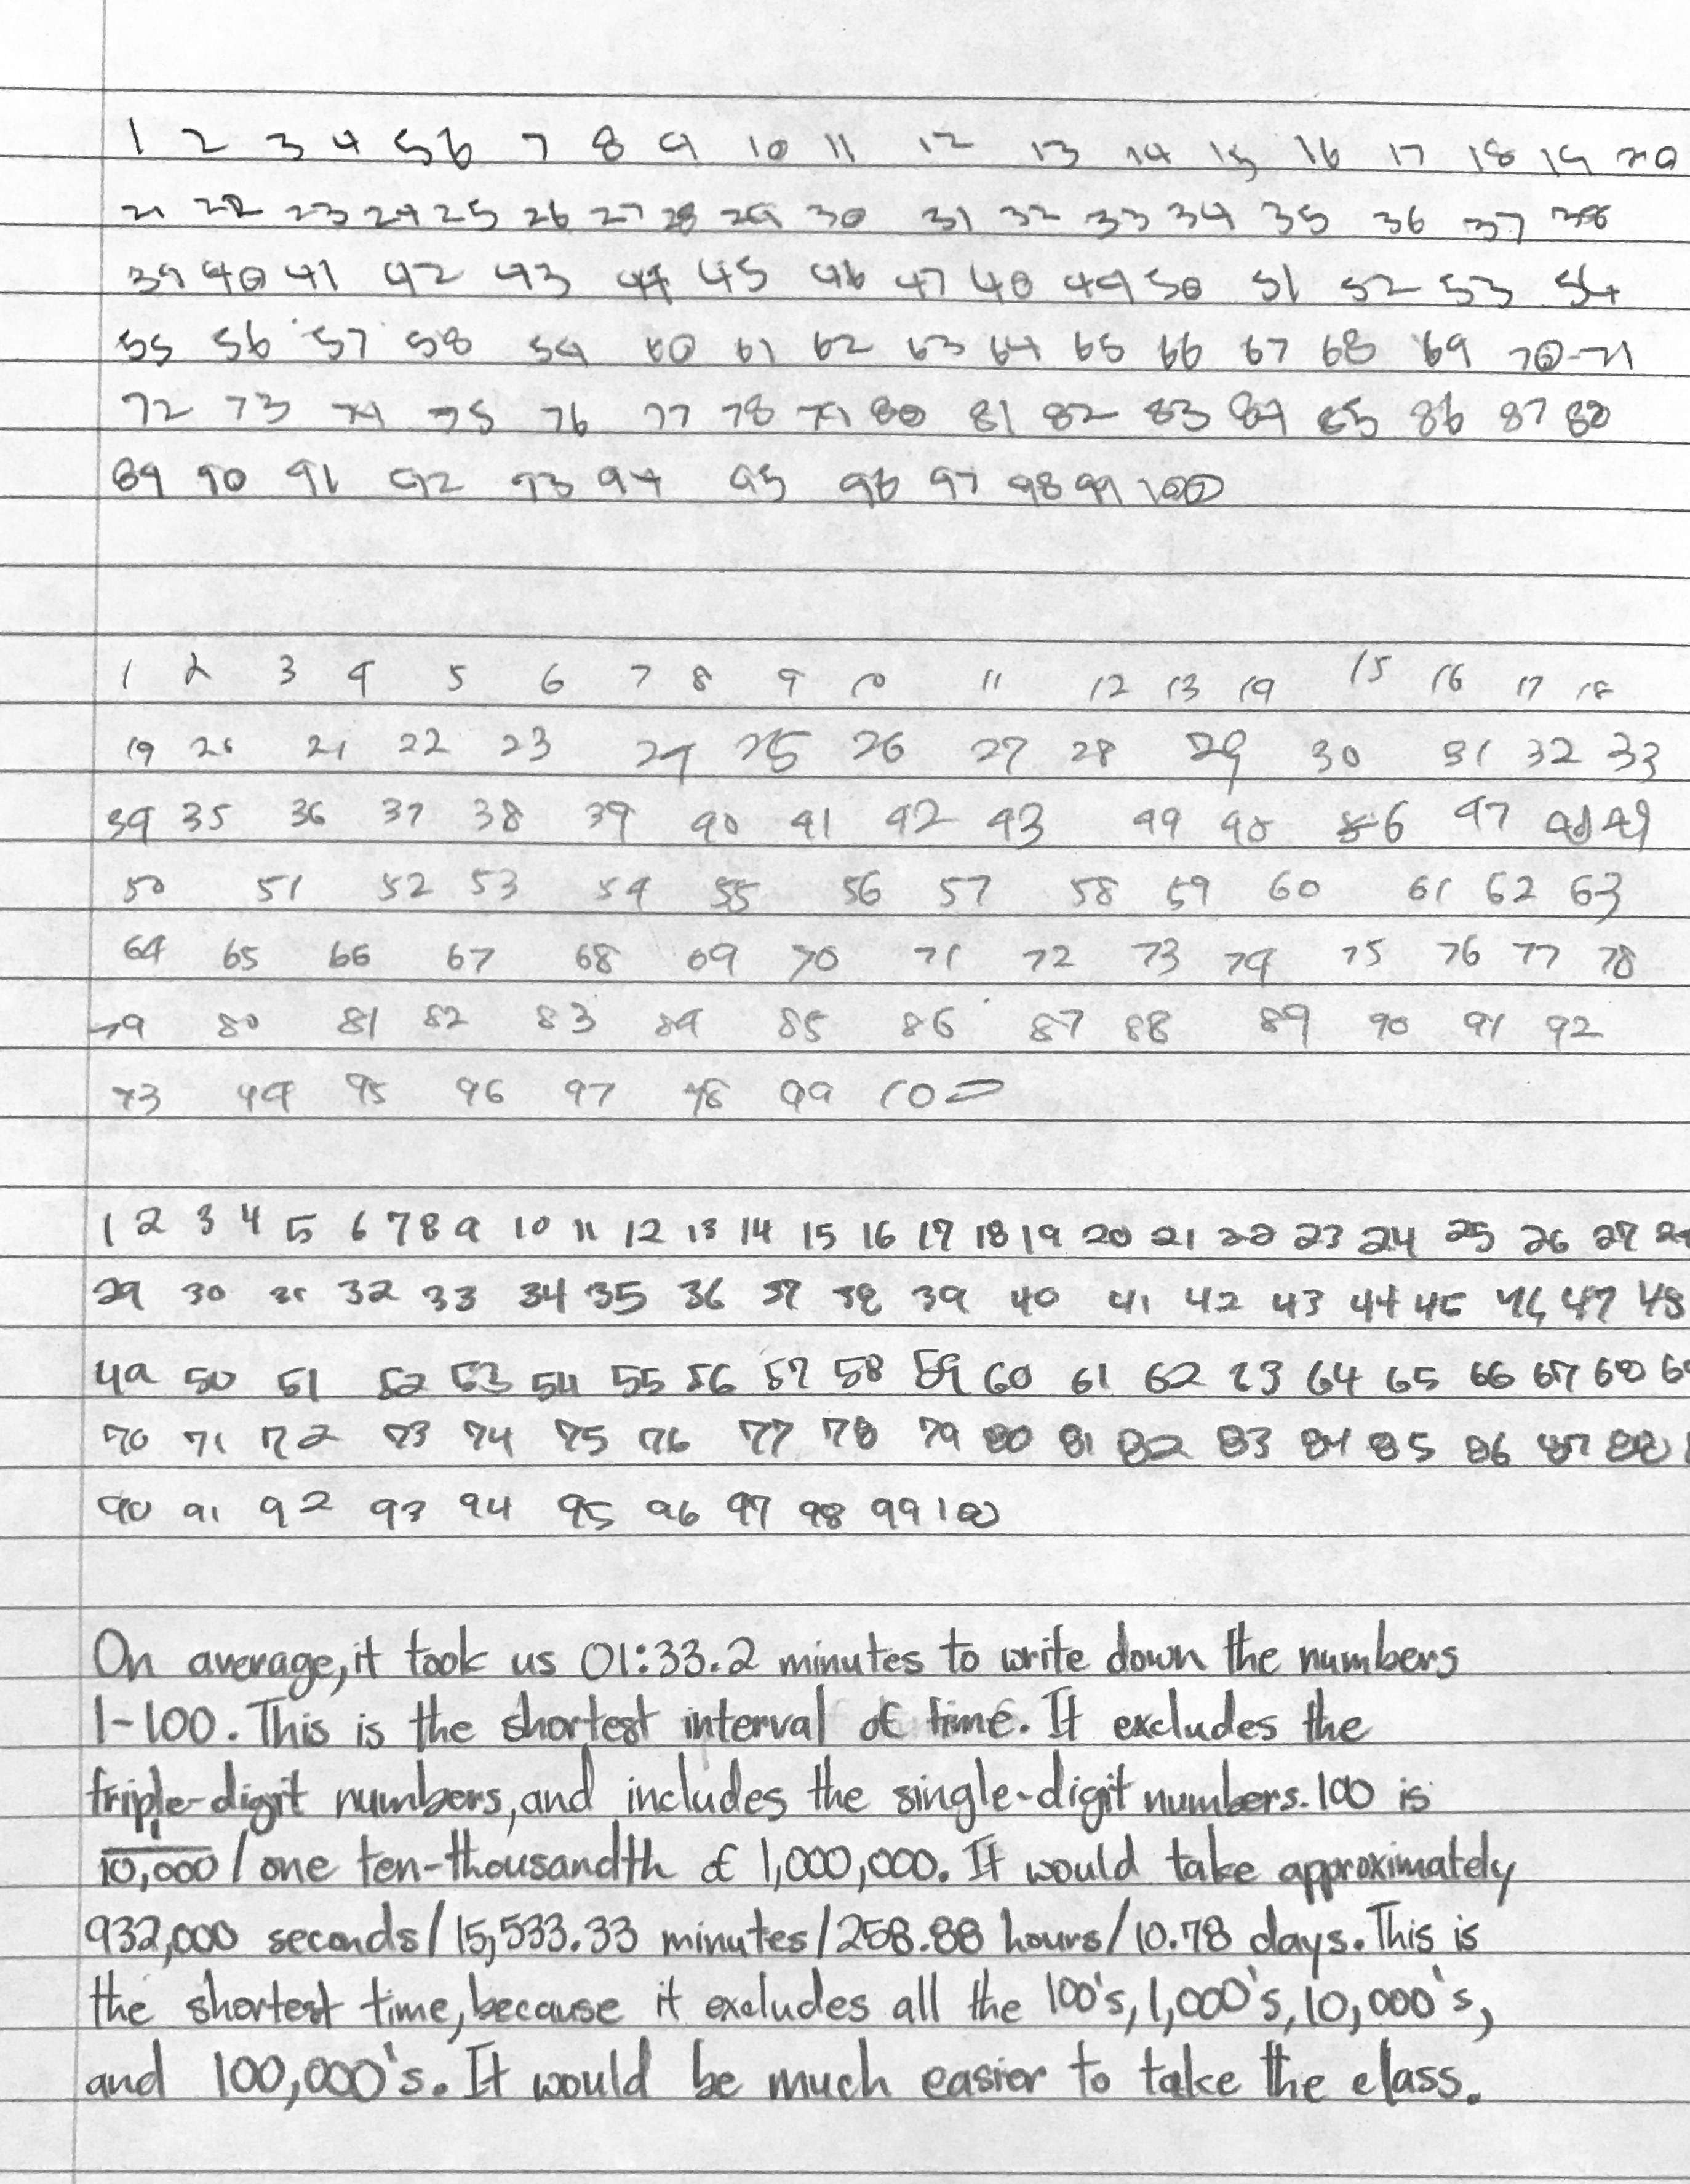 1 2 3 4 5 6 7 8 9 10 11 12 13 14 15 16 17 18 19 20
21 22 23 24 25 26 27 28 29 30 31 32 33 34 35 36 37 38
39 40 41 42 43 44 45 46 47 48 49 50 51 52 53 54
55 56 57 58 59 60 61 62 63 64 65 66 67 68 69 70 71
72 73 74 75 76 77 78 79 80 81 82 83 84 85 86 87 88
89 90 91 92 93 94 95 96 97 98 99 100
1 2 3 4 5 6 7 8 9 10 11 12 13 14 15 16 17 18
19 20 21 22 23 24 25 26 27 28 29 30 31 32 33
34 35 36 37 38 39 40 41 42 43 44 45 46 47 48 49
50 51 52 53 54 55 56 57 58 59 60 61 62 63
64 65 66 67 68 69 70 71 72 73 74 75 76 77 78
79 80 81 82 83 84 85 86 87 88 89 90 91 92
93 94 95 96 97 98 99 100
1 2 3 4 5 6 7 8 9 10 11 12 13 14 15 16 17 18 19 20 21 22 23 24 25 26 27
29 30 31 32 33 34 35 36 37 38 39 40 41 42 43 44 45 46 47 48
49 50 51 52 53 54 55 56 57 58 59 60 61 62 63 64 65 66 67 68
70 71 72 73 74 75 76 77 78 79 80 81 82 83 84 85 86 87 88
90 91 92 93 94 95 96 97 98 99 100
On average, it took us 01:33.2 minutes to write down the numbers
1-100. This is the shortest interval of time. It excludes the
triple-digit numbers, and includes the single-digit numbers. 100 is
1/10,000 / one ten-thousandth of 1,000,000. It would take approximately
932,000 seconds/15,533.33 minutes/258.88 hours/10.78 days. This is
the shortest time, because it excludes all the 100's, 1,000's, 10,000's,
and 100,000's. It would be much easier to take the class.